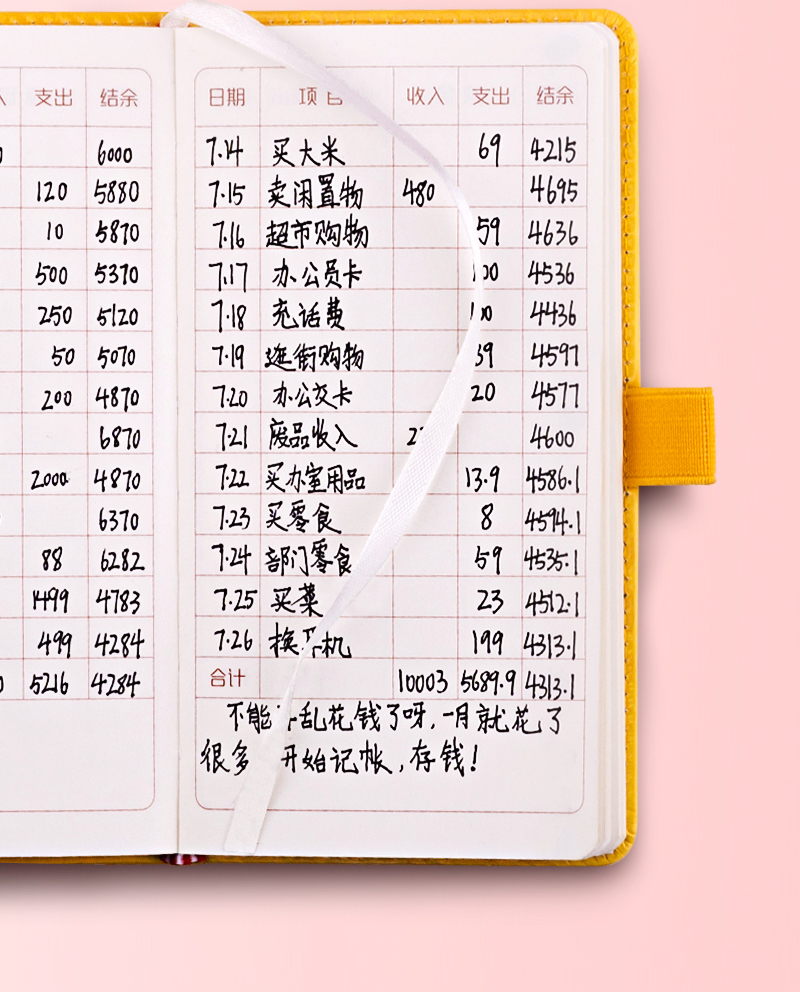 支出 结余
6000
120 5880
10 5870
500 5370
250 5120
50 5070
200 4870
6870
2000 4870
6370
88 6282
1499 4783
499 4284
5216 4284
日期 项 收入 支出 结余
7.14 买大米 69 4215
7.15 卖闲置物 480 4695
7.16 超市购物 59 4636
7.17 办公员卡 00 4536
7.18 充话费 00 4436
7.19 逛街购物 39 4597
7.20 办公交卡 20 4577
7.21 废品收入 2 4600
7.22 买办室用品 13.9 4586.1
7.23 买零食 8 4594.1
7.24 部门零食 59 4535.1
7.25 买菜 23 4512.1
7.26 换 机 199 4313.1
合计 10003 5689.9 4313.1
不能 乱花钱了呀,一月就花了
很多 开始记帐,存钱!